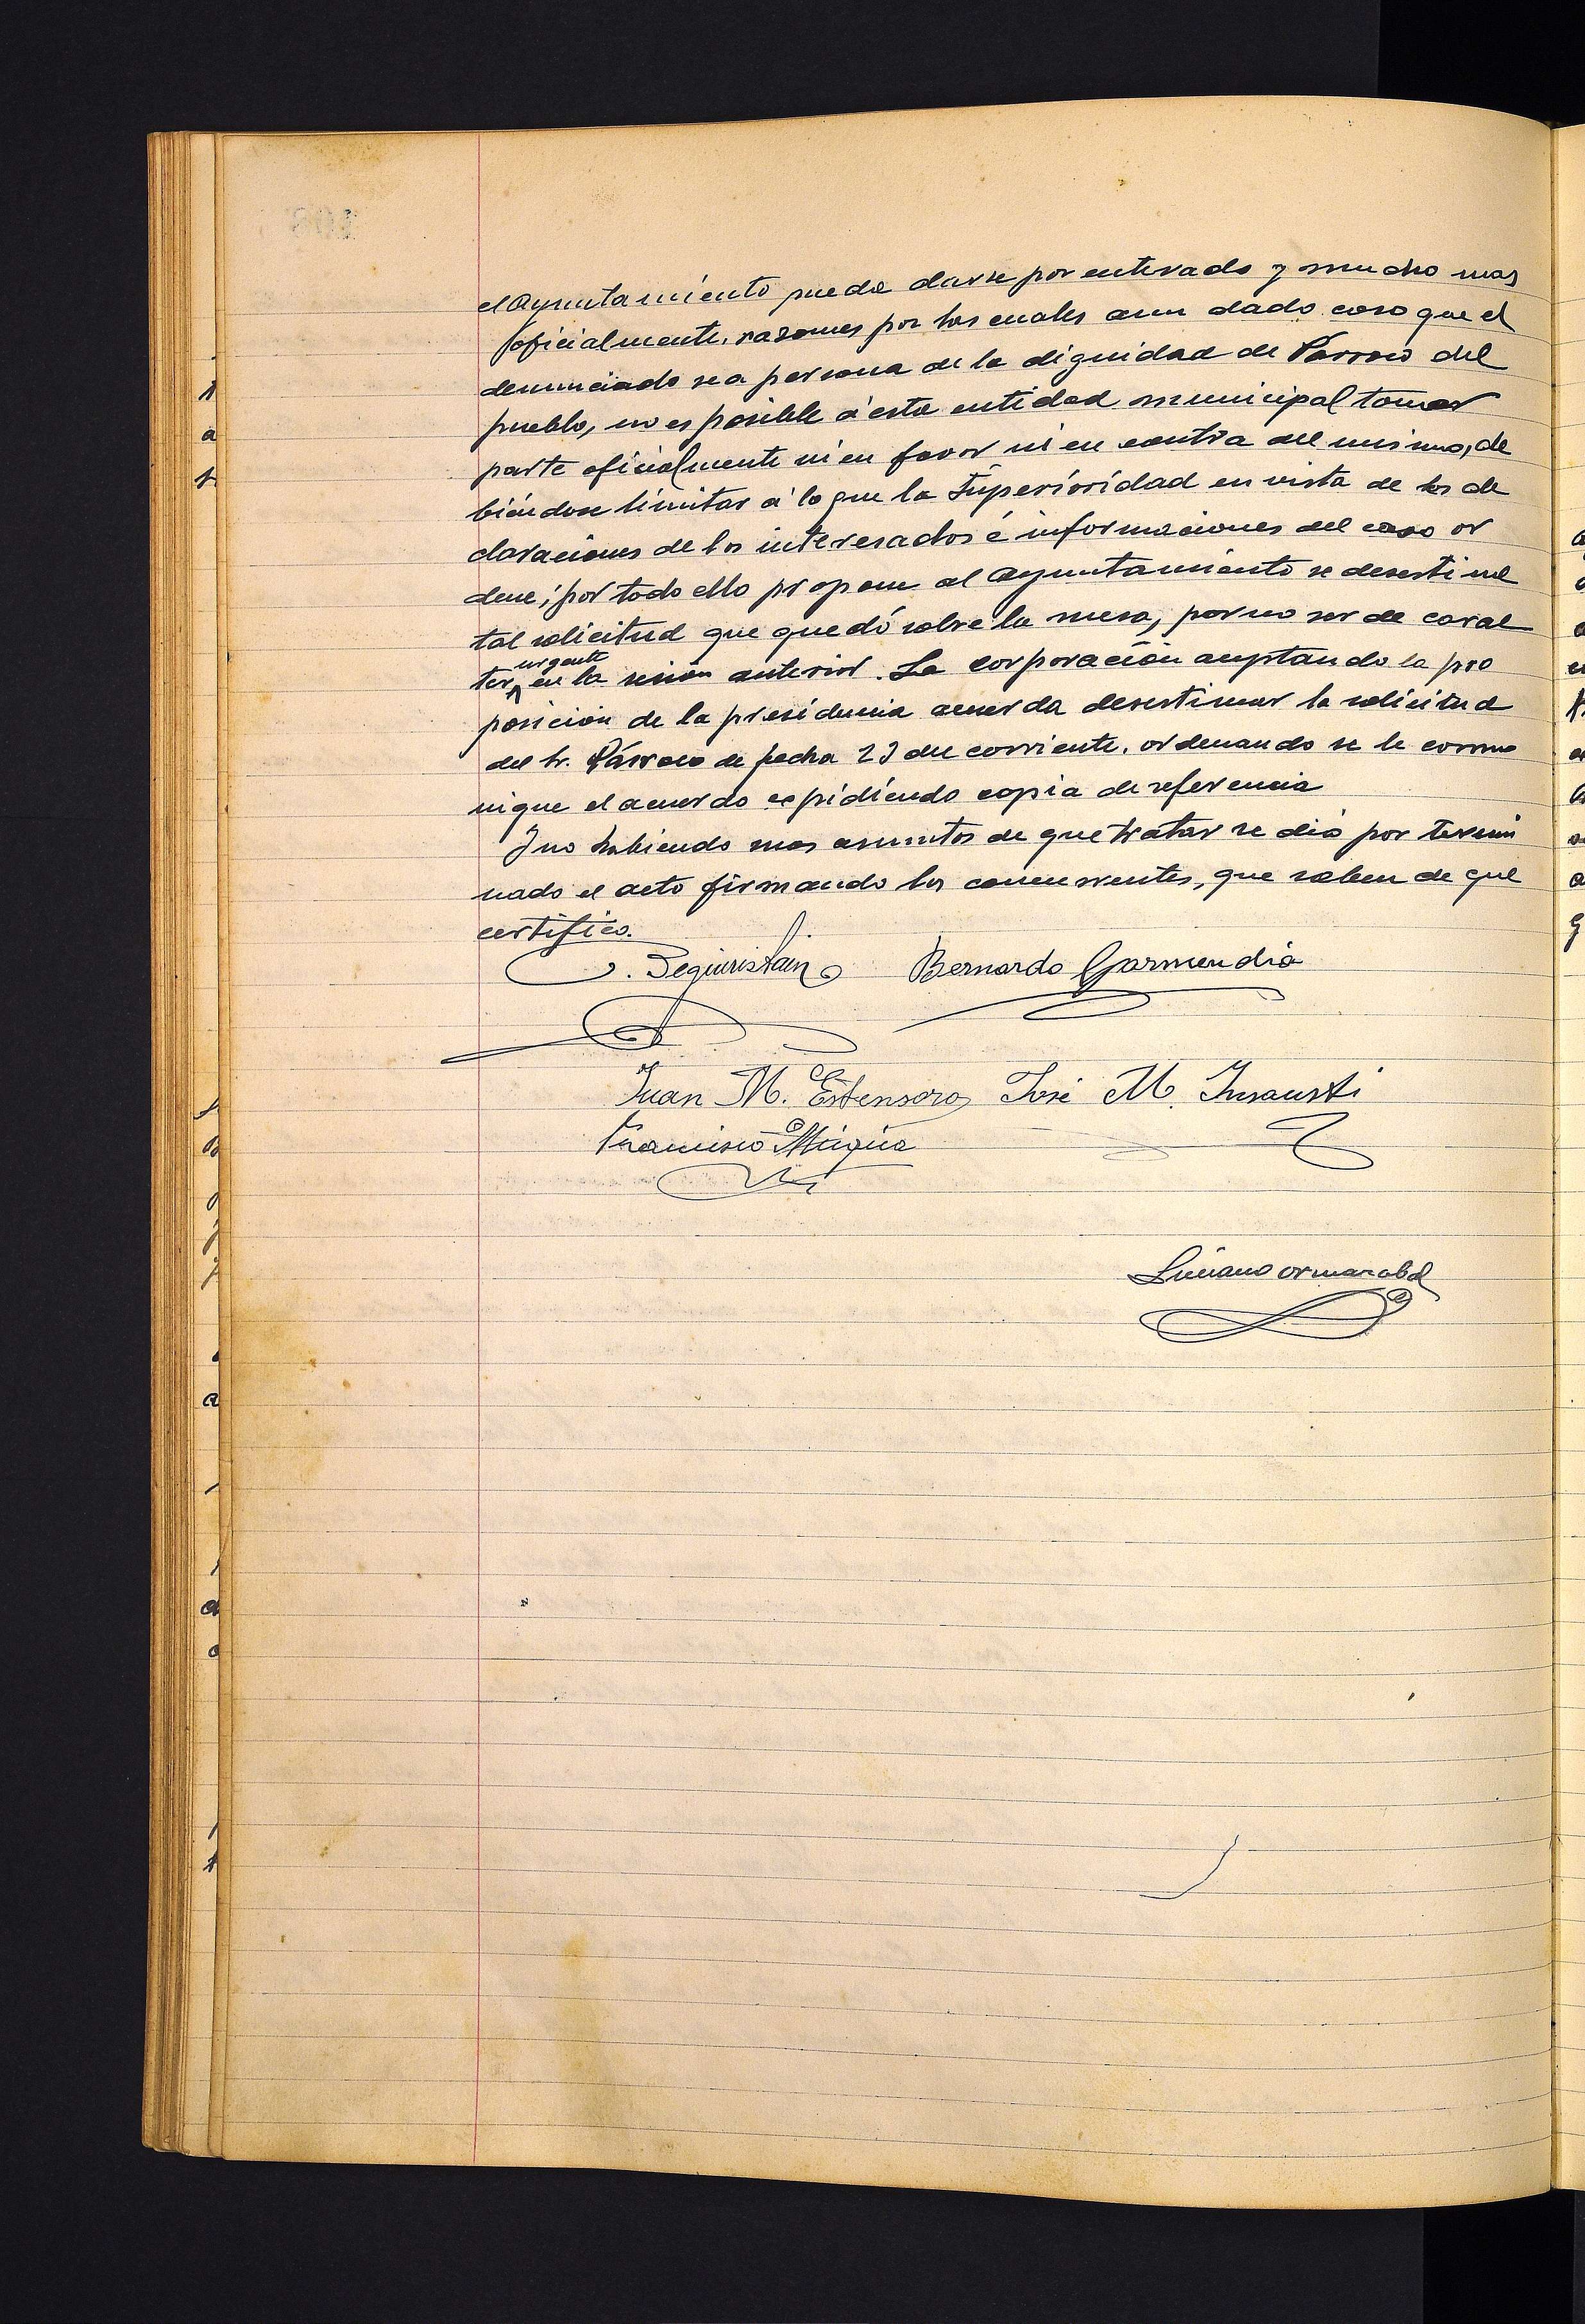 el Ayuntamiento pueda darse por enterado y mucho mas
oficialmente, razones por las cuales aun dado caso que el
denunciado sea persona de la dignidad de Parroco del
pueblo, no es posible á esta entidad municipal tomar
parte oficialmente ni en favor ni en contra del mismo, de
biéndose limitar á lo que la Superioridad en vista de las de
claraciones de los interesados é informaciones del caso or
dene; por todo ello propone al Ayuntamiento se desestime
tal solicitud que quedó sobre la mesa, por no ser de carac
urgente
ter en la sesión anterior. La corporación aceptando la pro
posición de la presidencia acuerda desestimar la solicitud
del Sr. Párroco de fecha 23 del corriente, ordenando se le comu
nique el acuerdo expidiendo copia de referencia
Y no habiendo mas asuntos de que tratar se dió por termi
nado el acto firmando los concurrentes, que saben de que
certifico.
J. Beguiristain Bernardo Garmendia
Juan M. Estensoro José M. Insausti
Francisco Múgica
Luciano Ormazabal